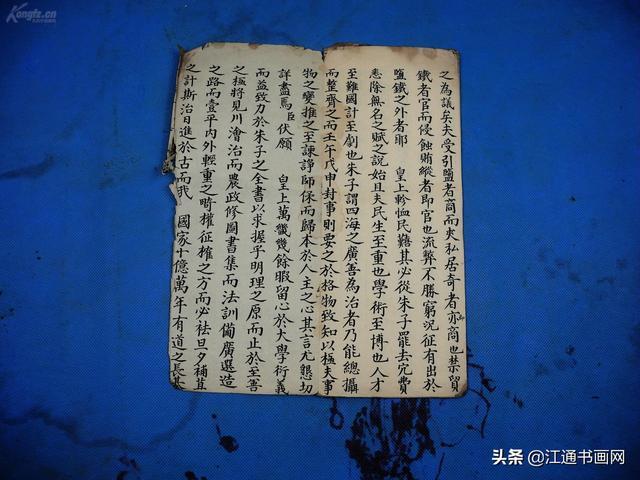 Kongfz.cn
之為議矣夫受引鹽者商而夾私居奇者亦商也禁貿
鐵者官而侵蝕賄縱者即官也流弊不勝窮況征有出於
鹽鐵之外者耶　皇上軫恤民艱其必從朱子罷去宂費
悉除無名之賦之說始且夫民生至重也學術至博也人才
至難國計至劇也朱子謂四海之廣善為治者乃能總攝
而整齊之而壬午戊申封事則要之於格物致知以極夫事
物之變推之至諫諍師保而歸本於人主之心其言尤懇切
詳盡焉臣伏願　皇上萬幾餘暇留心於大學衍義
而益致力於朱子之全書以求握乎明理之原而止於至善
之極將見川澮治而農政修圖書集而法訓備廣選造
之路而壹平內外輕重之畸權征榷之方而必祛旦夕補苴
之計斯治日進於古而我　國家十億萬年有道之長基
头条 @江通书画网